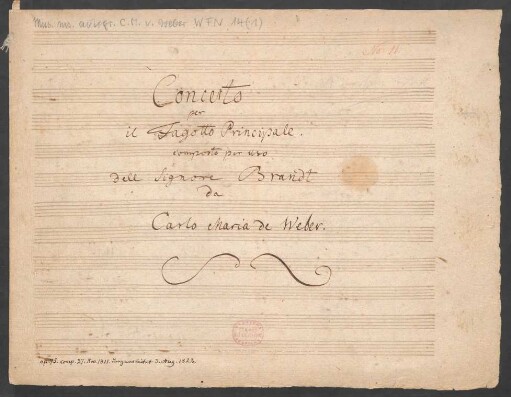 Mus. ms. autogr. C. M. v. Weber WFN 14(1)
Concerto
per
il Fagotto Principale.
composto per uso
Dell Signore Brandt
da
Carlo Maria de Weber.
op. 75. comp. 27. Nov. 1811. umgearbeitet. Aug. 1822